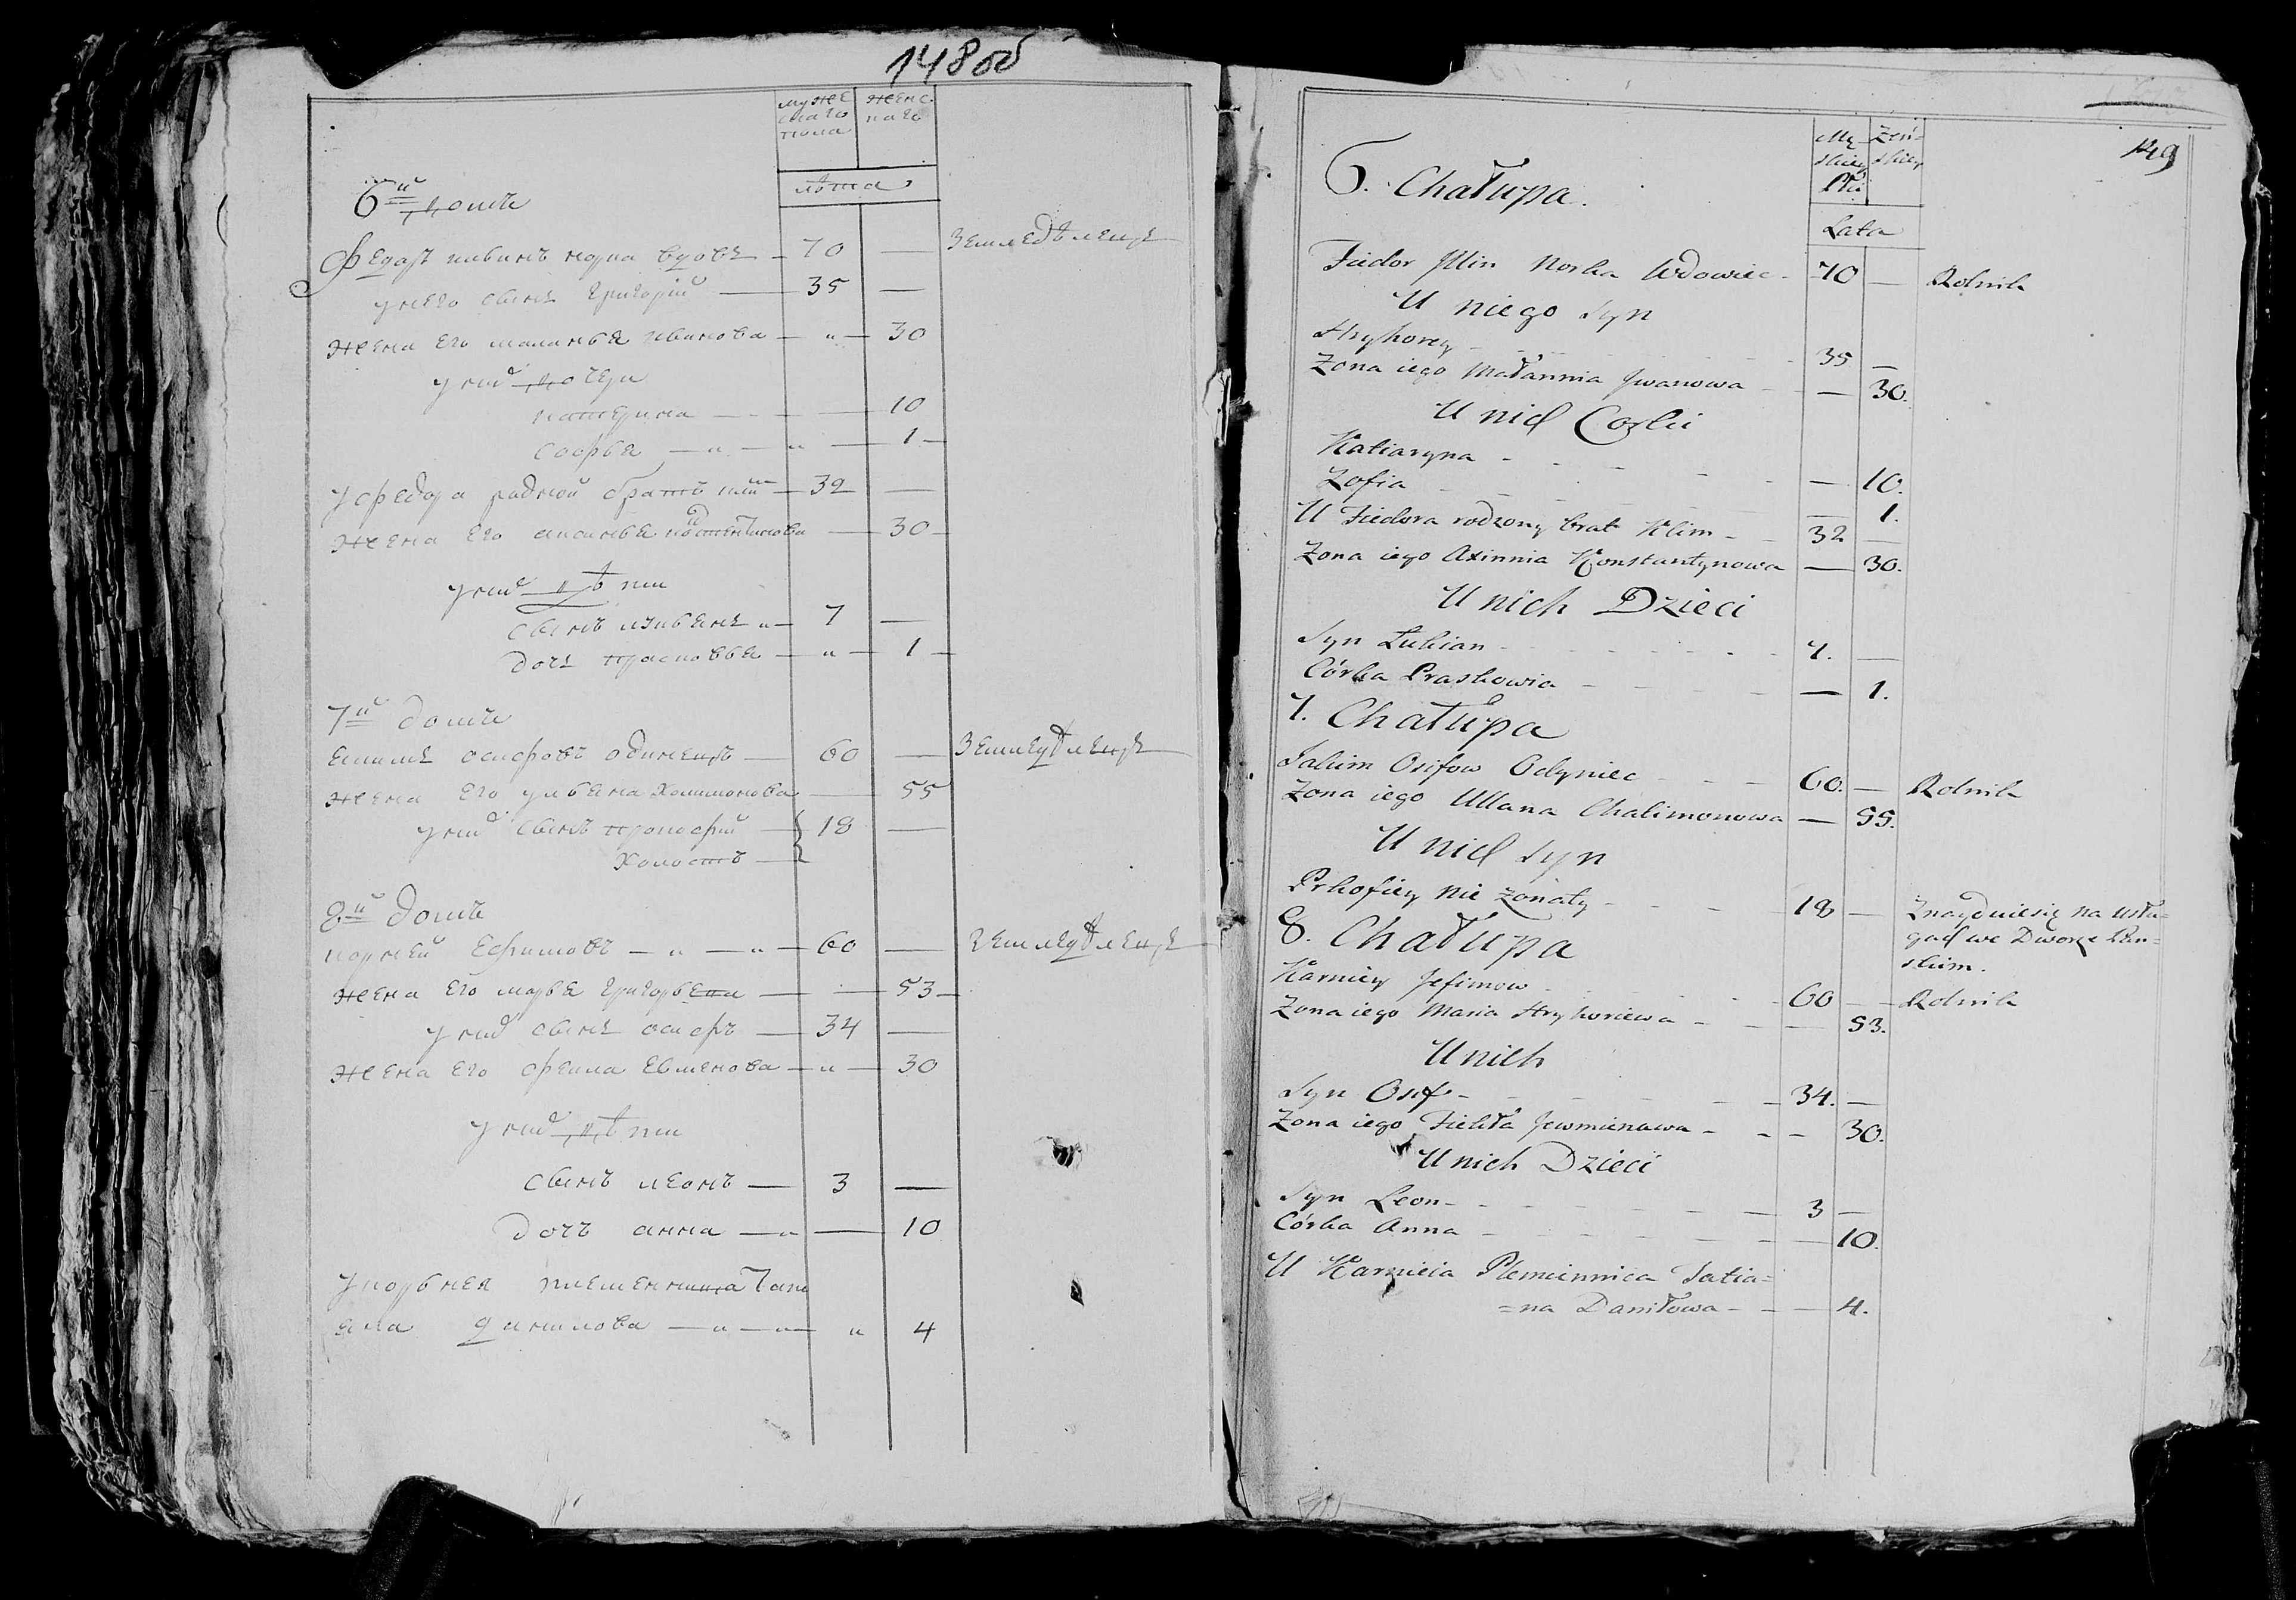 148об
мужескаго пола
женскаго
лѣта
6й домъ
Федоръ илинъ норка вдовец — 70 — Земледѣлецъ
у него сынъ григорій — 35 —
жена его маланья иванова — " — 30
у них дочери
катерина — — — 10
софья — " — " — 1 —
у федора радной братъ клим — 32 —
жена его аксинья костентинова — 30 —
у них дѣти
сынъ лукьянъ " — 7 —
дочъ прасковья — " — 1 —
7й домъ
екимъ осифовъ одинецъ — 60 — Земледѣлецъ
жена его ульяна халимонова — 55
у них сынъ прокофій — 18 —
холостъ —
8й домъ
корней Ефимовъ — " — " — 60 — земледѣлецъ
жена его марья григорьева — — 53 —
у них сынъ осифъ — 34 —
жена его фекла евменова — " — 30
у них дѣти
сынъ леонъ — 3 —
дочъ анна — " — 10
у корьнея племенница Тати
яна данилова — " — " — " 4
149
Męskiey Płci
Żeńskiey
Lata
6. Chałupa.
Fiedor Illin Norka Wdowiec - 70 — Rolnik
U niego syn
Hryhorey - 35 —
Żona iego Małannia Jwanowa - — 30.
U nich Corki
Katiaryna - - - — 10.
Zofia - - - — 1.
U Fiedora rodzony brat Klim - - 32 —
Żona iego Axinnia Konstantynowa — 30.
U nich Dzieci
Syn Łukian - - - 7. —
Córka Praskowia - - - — 1.
7. Chałupa
Jakim Osifow Odyniec - - - 60. — Rolnik
Żona iego Ullana Chalimonowa — 55.
U nich syn
Prkofiey nie żonaty - - - 18 — Znayduiesię na usłu=
gach we Dworze Pań=
skim.
8. Chałupa
Karniey Jefimow - - - 60 — Rolnik
Żona iego Maria Hryhoriewa - - — 53.
U nich
Syn Osif - - - 34. —
Żona iego Fiekła Jewmienawa - - — 30.
U nich Dzieci
Syn Leon - - - 3 —
Córka Anna - - - — 10.
U Karnieia Plemiennica Tatia=
=na Daniłowa - - — 4.